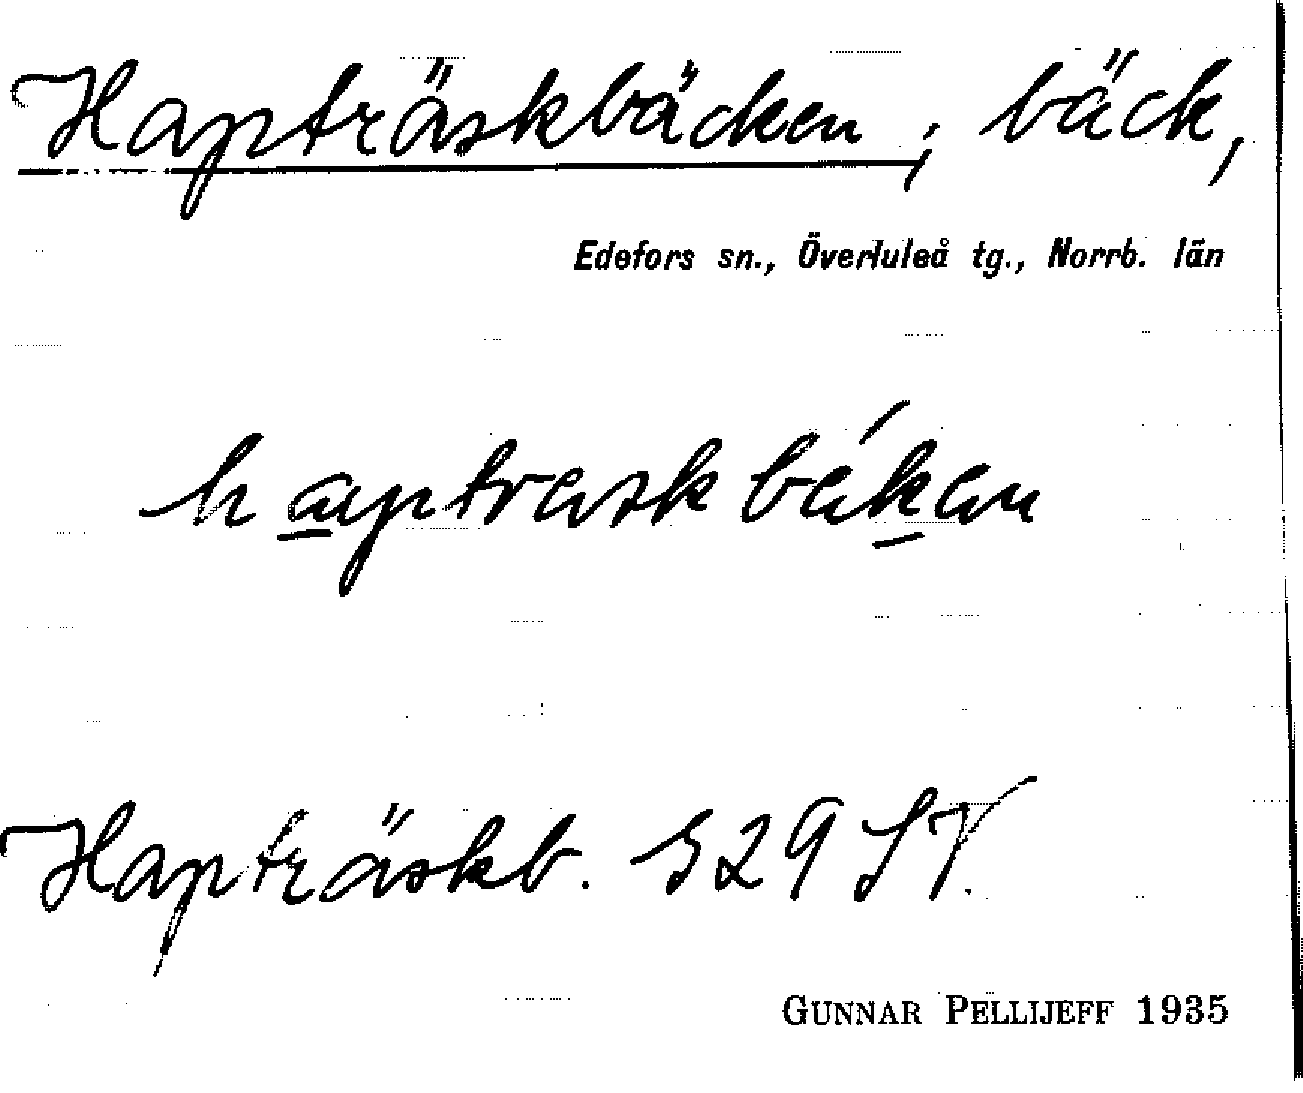 Hapträskbäcken, bäck,
Edefors sn., Överluleå tg., Norrb. län
haptraskbákan
Hapträskb. 329 SV.
GUNNAR PELLIJEFF 1935